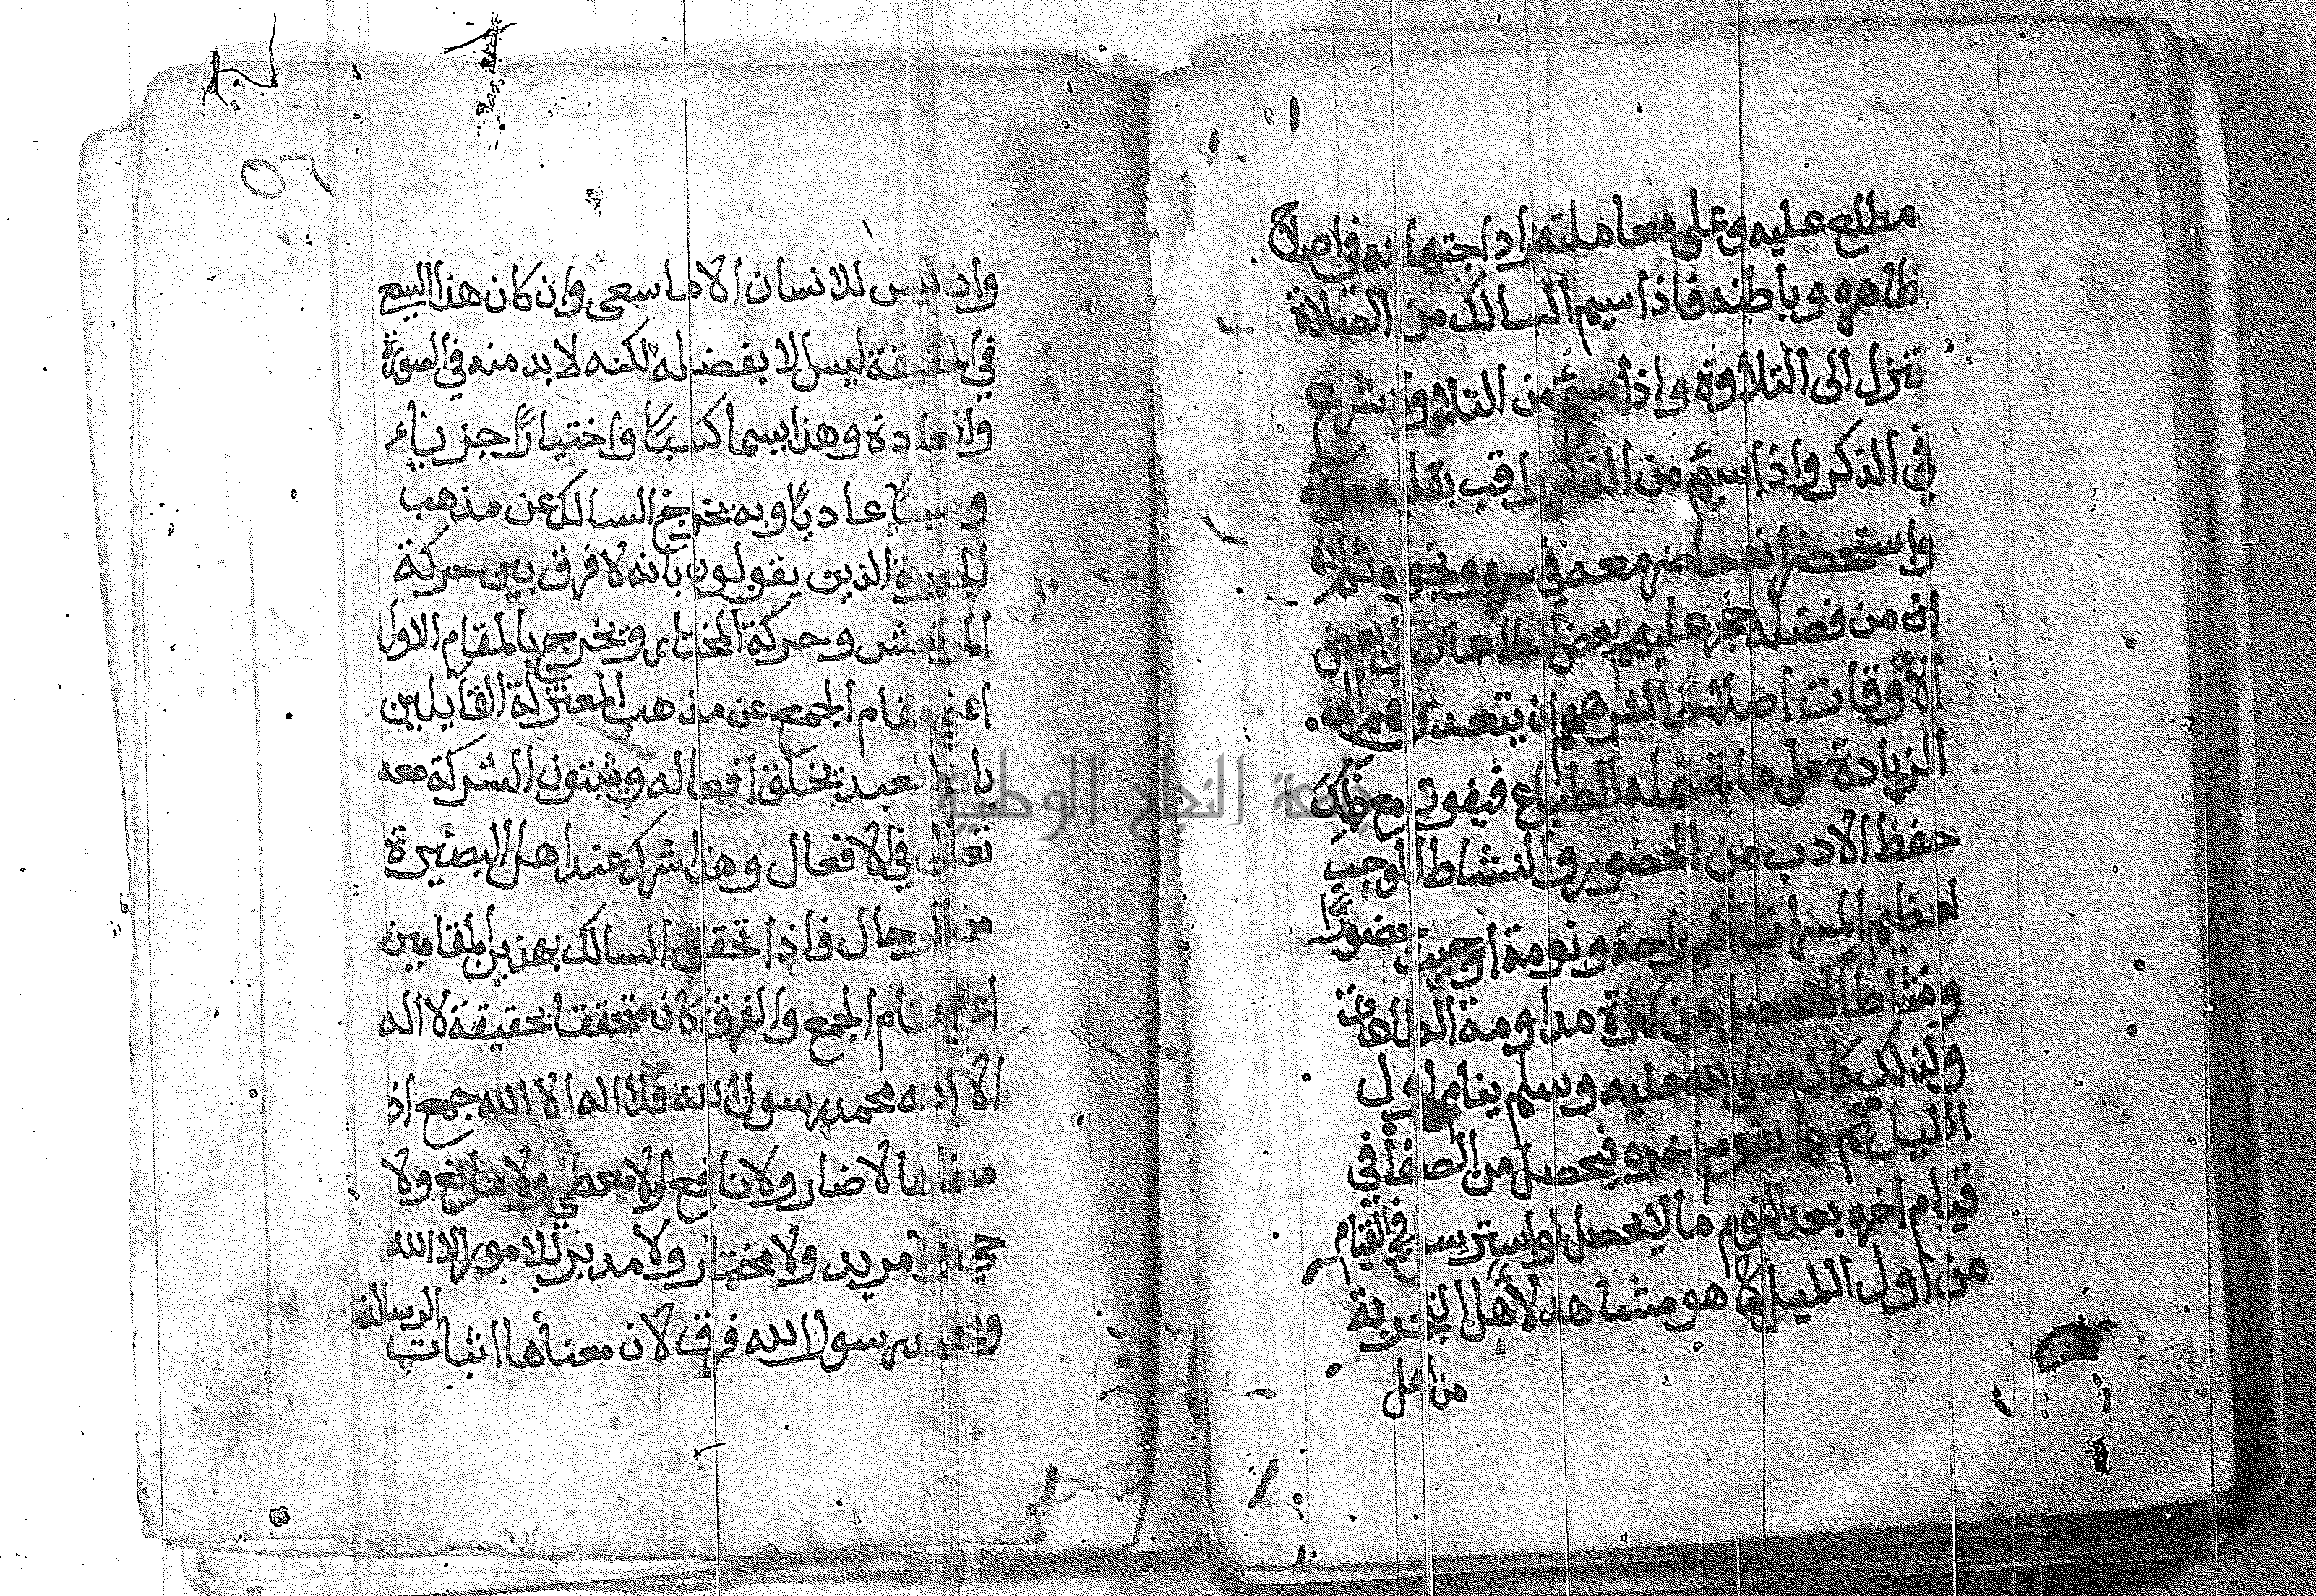 مطلع عليه وعلى معاملته زاد اجتهاده في اصلاح
ظاهره وباطنه فاذا سيم السالك من الصلاة
تنزل الى التلاوة واذا سيم من التلاوة شرع
في الذكر واذا سيم من الذكر راقب بقلبه
واستحضر انه حاضر معه في سره ونجواه
ان من فضله عليهم بعض الطاعات في بعض
الأوقات اصلاحا لشرهم ان يتعدى
الزيادة على ما تحتمله الطباع فيفوت مع ذلك
حفظ الادب من الحضور والنشاط الموجب
لعظيم المنزلة راحة ونومة اوجبت حضورًا
ونشاطا من كثرة مداومة الطاعات
ولذلك كان صلى الله عليه وسلم ينام اول
الليل ثم يقوم اخره فيحصل من الصفا في
قيام اخره بعد النوم ما لا يحصل لو استرسل في القيام
من اول الليل كما هو مشاهد لأهل التجربة
من اهل
٥٦
وان ليس للانسان الا ما سعى وان كان هذا السع
في الحقيقة ليس الا بفضله لكنه لا بد منه في الصورة
والعادة وهذا يسما كسبًا واختيارًا جزياء
وسببًا عاديًا وبه يخرج السالك عن مذهب
الجبرية الذين يقولون بانه لا فرق بين حركة
المرتعش وحركة المختار ويخرج بالمقام الاول
اعني مقام الجمع عن مذهب المعتزلة القايلين
بان العبد يخلق افعاله ويثبتون الشركة معه
تعالى في الافعال وهذا شرك عند اهل البصيرة
من الرجال فاذا تحقق السالك بهذين المقامين
اعني مقام الجمع والفرق كان متحققا بحقيقة لا اله
الا الله محمد رسول الله فلا اله الا الله جمع اذ
معناها لا ضار ولا نافع ولا معطي ولا مانع ولا
حي ولا مريد ولا مختار ولا مدبر للامور الا الله
ومحمد رسول الله فرق لان معناها اثبات الرسالة
جامعة النجاح الوطنية